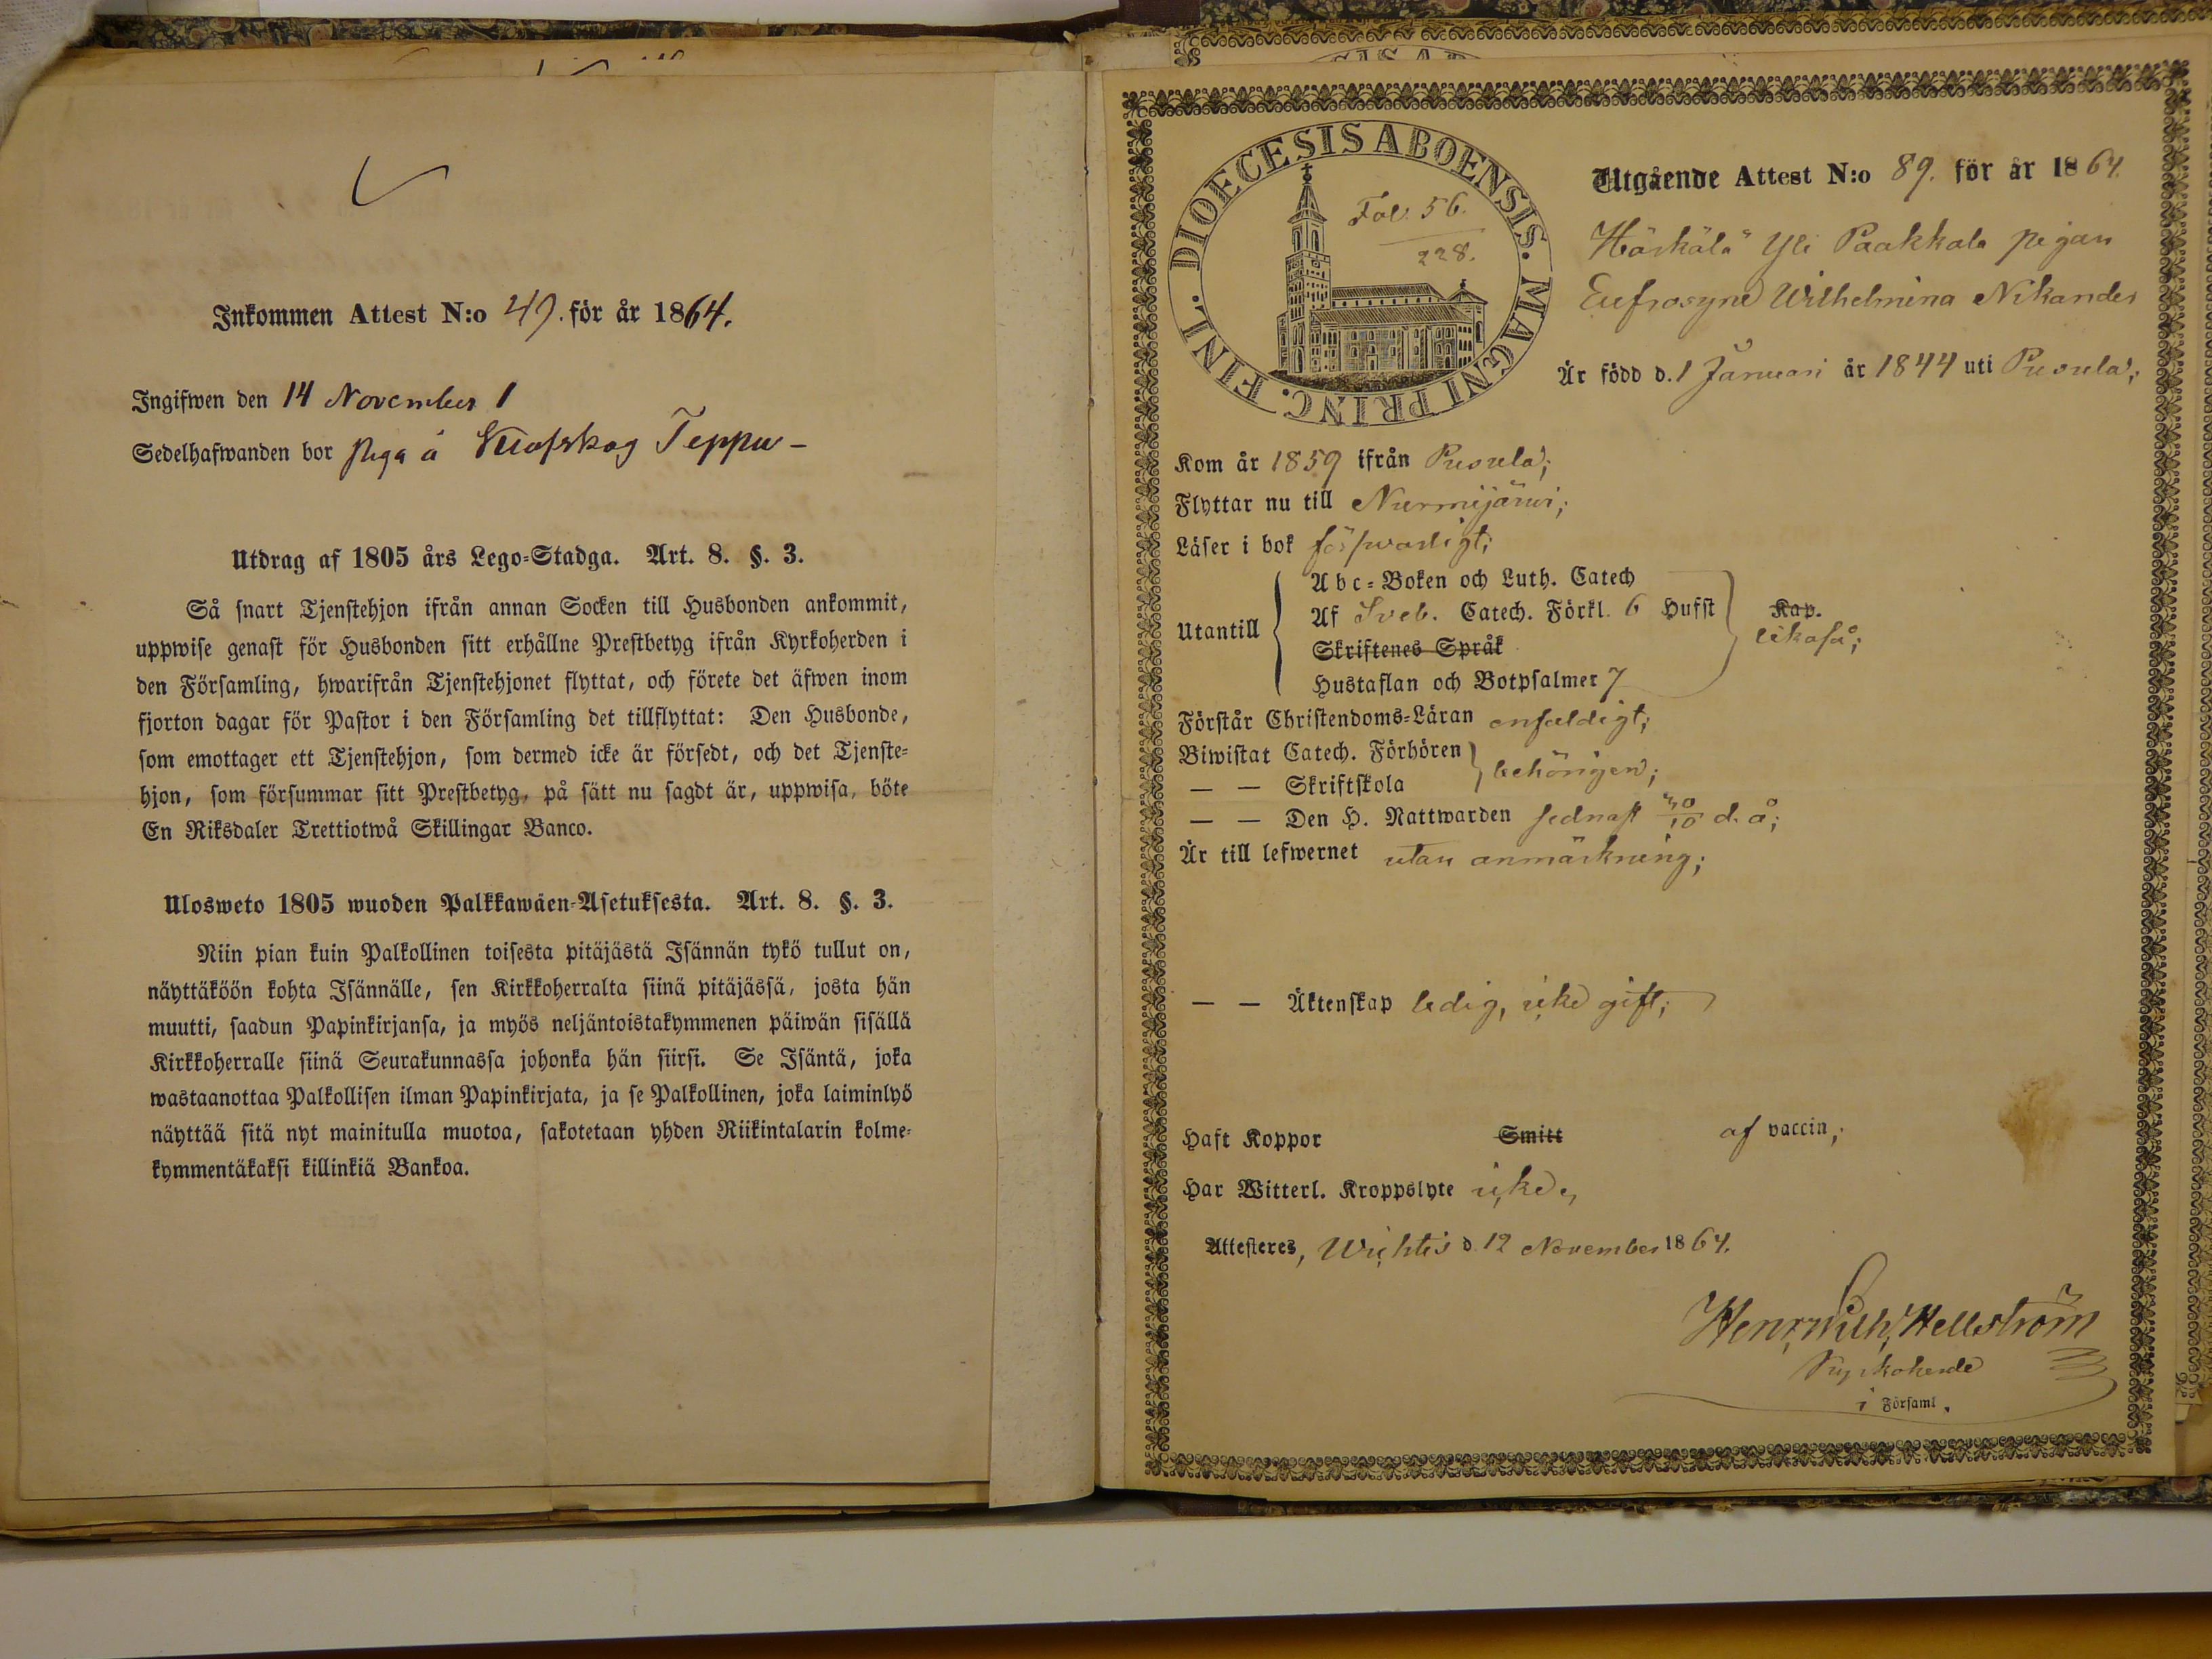 Inkommen Attest N:o 49. för år 1864.
Ingifwen den 14 November 1
Sedelhafwanden bor piga å Teppu -
Utdrag af 1805 års Lego-Stadga. Art. 8. §. 3.
Så snart Tjenstehjon ifrån annan Socken till Husbonden ankommit,
uppwise genast för Husbonden sitt erhållne Prestbetyg ifrån Kyrkoherden i
den Församling, hwarifrån Tjenstehjonet flyttat, och förete det äfwen inom
fjorton dagar för Pastor i den Församling det tillflyttat: Den Husbonde,
som emottager ett Tjenstehjon, som dermed icke är försedt, och det Tjenste-
hjon, som försummar sitt Prestbetyg, på sätt nu sagdt är, uppwisa, böte
En Riksdaler Trettiotwå Skillingar Banco.
Ulosweto 1805 wuoden Palkkawäen-Asetuksesta. Art. 8. §. 3.
Niin pian kuin Palkollinen toisesta pitäjästä Isännän tykö tullut on,
näyttäköön kohta Isännälle, sen Kirkkoherralta siinä pitäjässä, josta hän
muutti, saadun Papinkirjansa, ja myös neljäntoistakymmenen päiwän sisällä
Kirkkoherralle siinä Seurakunnassa johonka hän siirsi. Se Isäntä, joka
wastaanottaa Palkollisen ilman Papinkirjata, ja se Palkollinen, joka laiminlyö
näyttää sitä nyt mainitulla muotoa, sakotetaan yhden Riikintalarin kolme-
kymmentäkaksi killinkiä Bankoa.
DIOECESIS ABOENSIS. MAGNI PRINC. FINL.
Fol. 56.
228.
Utgående Attest N:o 89. för år 1864.
Härkälä Yli Paakkala pigan
Eufrosyne Wilhelmina Nikander
Är född d. 1 Januari år 1844 uti Pusula;
Kom år 1859 ifrån Pusula;
Flyttar nu till Nurmijärwi;
Läser i bok försvarligt;
Utantill
Abc-Boken och Luth. Catech
Af Sveb. Catech. Förkl. 6 Hufst
Skriftenes Språk
Hustaflan och Botpsalmer 7
Kap.
likaså;
Förstår Christendoms-Läran enfaldigt;
Biwistat Catech. Förhören
— — Skriftskola
behörigen;
— — Den H. Nattwarden sednast 30/10 d. å;
Är till lefwernet utan anmärkning;
— — Äktenskap ledig, icke gift;
Haft Koppor Smitt af vaccin;
Har Witterl. Kroppslyte icke,
Attesteres, Wichtis d. 12 November 1864.
Henr. Wilh. Hellström
Kyrkoherde
i Församl.